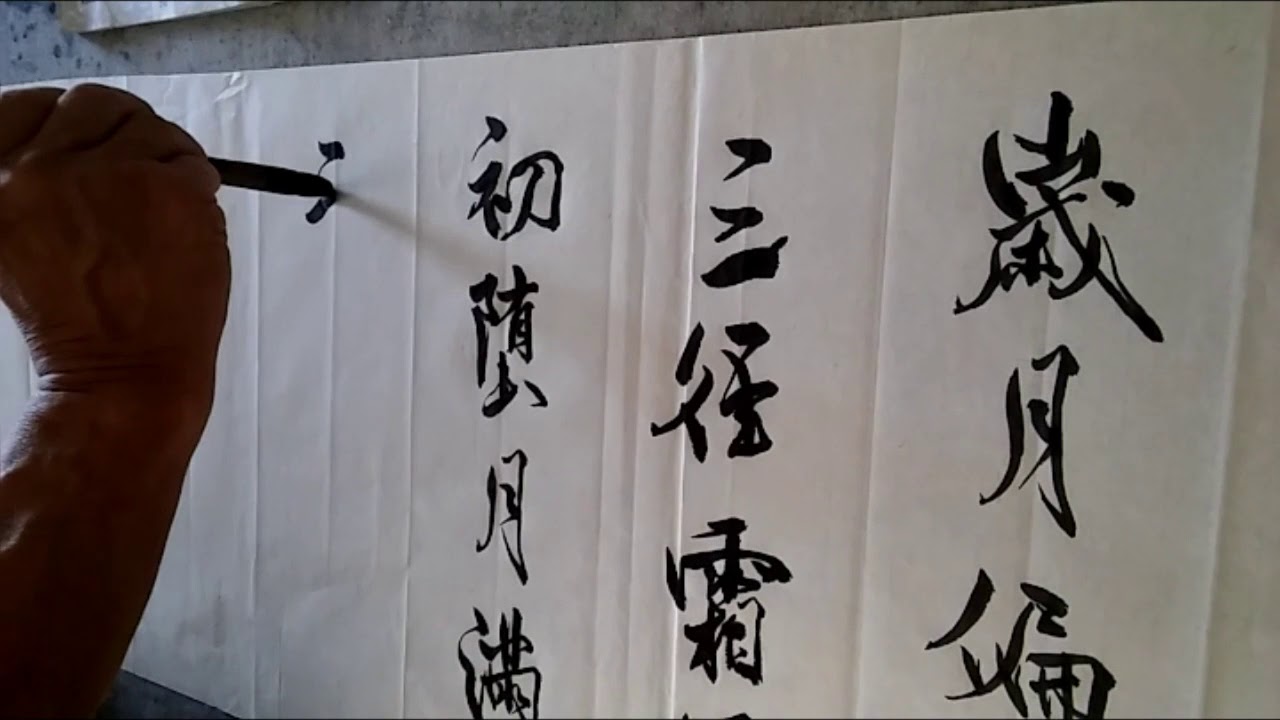 歲月偏
三徑霜
初墮月滿